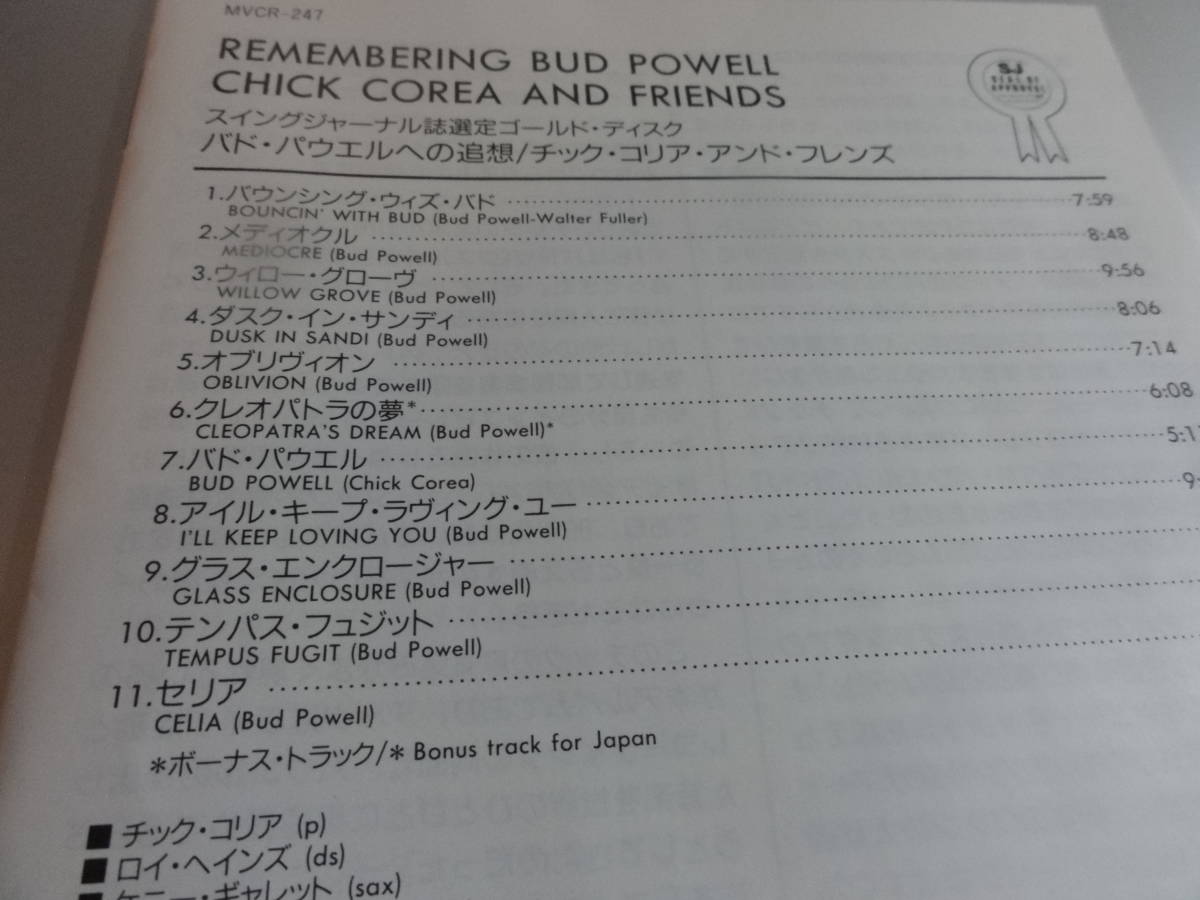 MVCR-247
REMEMBERING BUD POWELL
CHICK COREA AND FRIENDS
SJ
スイングジャーナル誌選定ゴールド・ディスク
バド・パウエルへの追想/チック・コリア・アンド・フレンズ
1.バウンシング・ウィズ・バド 7:59
BOUNCIN' WITH BUD (Bud Powell-Walter Fuller)
2.メディオクル 8:48
MEDIOCRE (Bud Powell)
3.ウィロー・グローヴ 9:56
WILLOW GROVE (Bud Powell)
4.ダスク・イン・サンディ 8:06
DUSK IN SANDI (Bud Powell)
5.オブリヴィオン 7:14
OBLIVION (Bud Powell)
6.クレオパトラの夢* 6:08
CLEOPATRA'S DREAM (Bud Powell)*
7.バド・パウエル 5:1
BUD POWELL (Chick Corea)
8.アイル・キープ・ラヴィング・ユー 9
I'LL KEEP LOVING YOU (Bud Powell)
9.グラス・エンクロージャー
GLASS ENCLOSURE (Bud Powell)
10.テンパス・フュジット
TEMPUS FUGIT (Bud Powell)
11.セリア
CELIA (Bud Powell)
*ボーナス・トラック/* Bonus track for Japan
■ チック・コリア (p)
■ ロイ・ヘインズ (ds)
■ ケニー・ギャレット (sax)